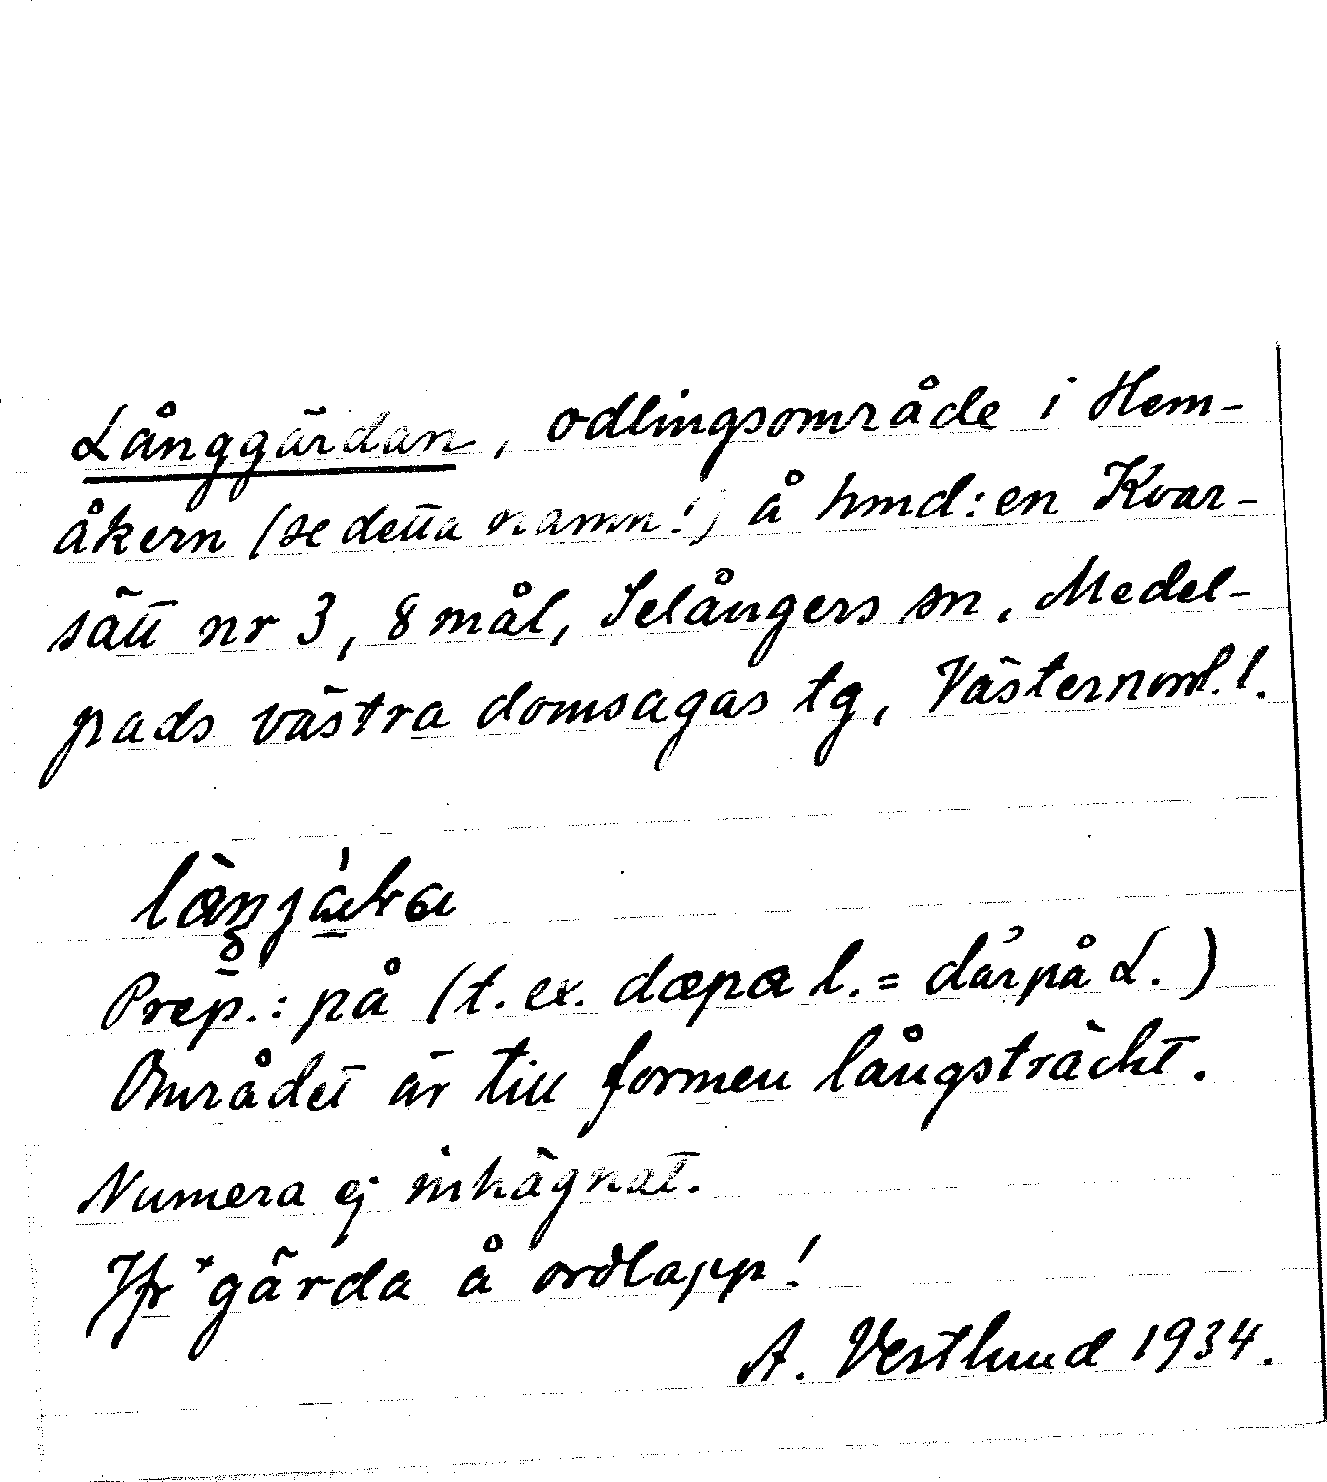 Långgärdan, odlingsområde i Hem-
åkern (se detta namn!) å hmd:en Kvar-
sätt nr 3, 8 mål, Selångers sn, Medel-
pads västra domsagas tg, Västernorrl. l.
Prep.: på (t. ex. dæpa l. = därpå L.)
Området är till formen långsträckt.
Numera ej inhägnat.
Jfr *gärda å ordlapp!
A. Vestlund 1934.